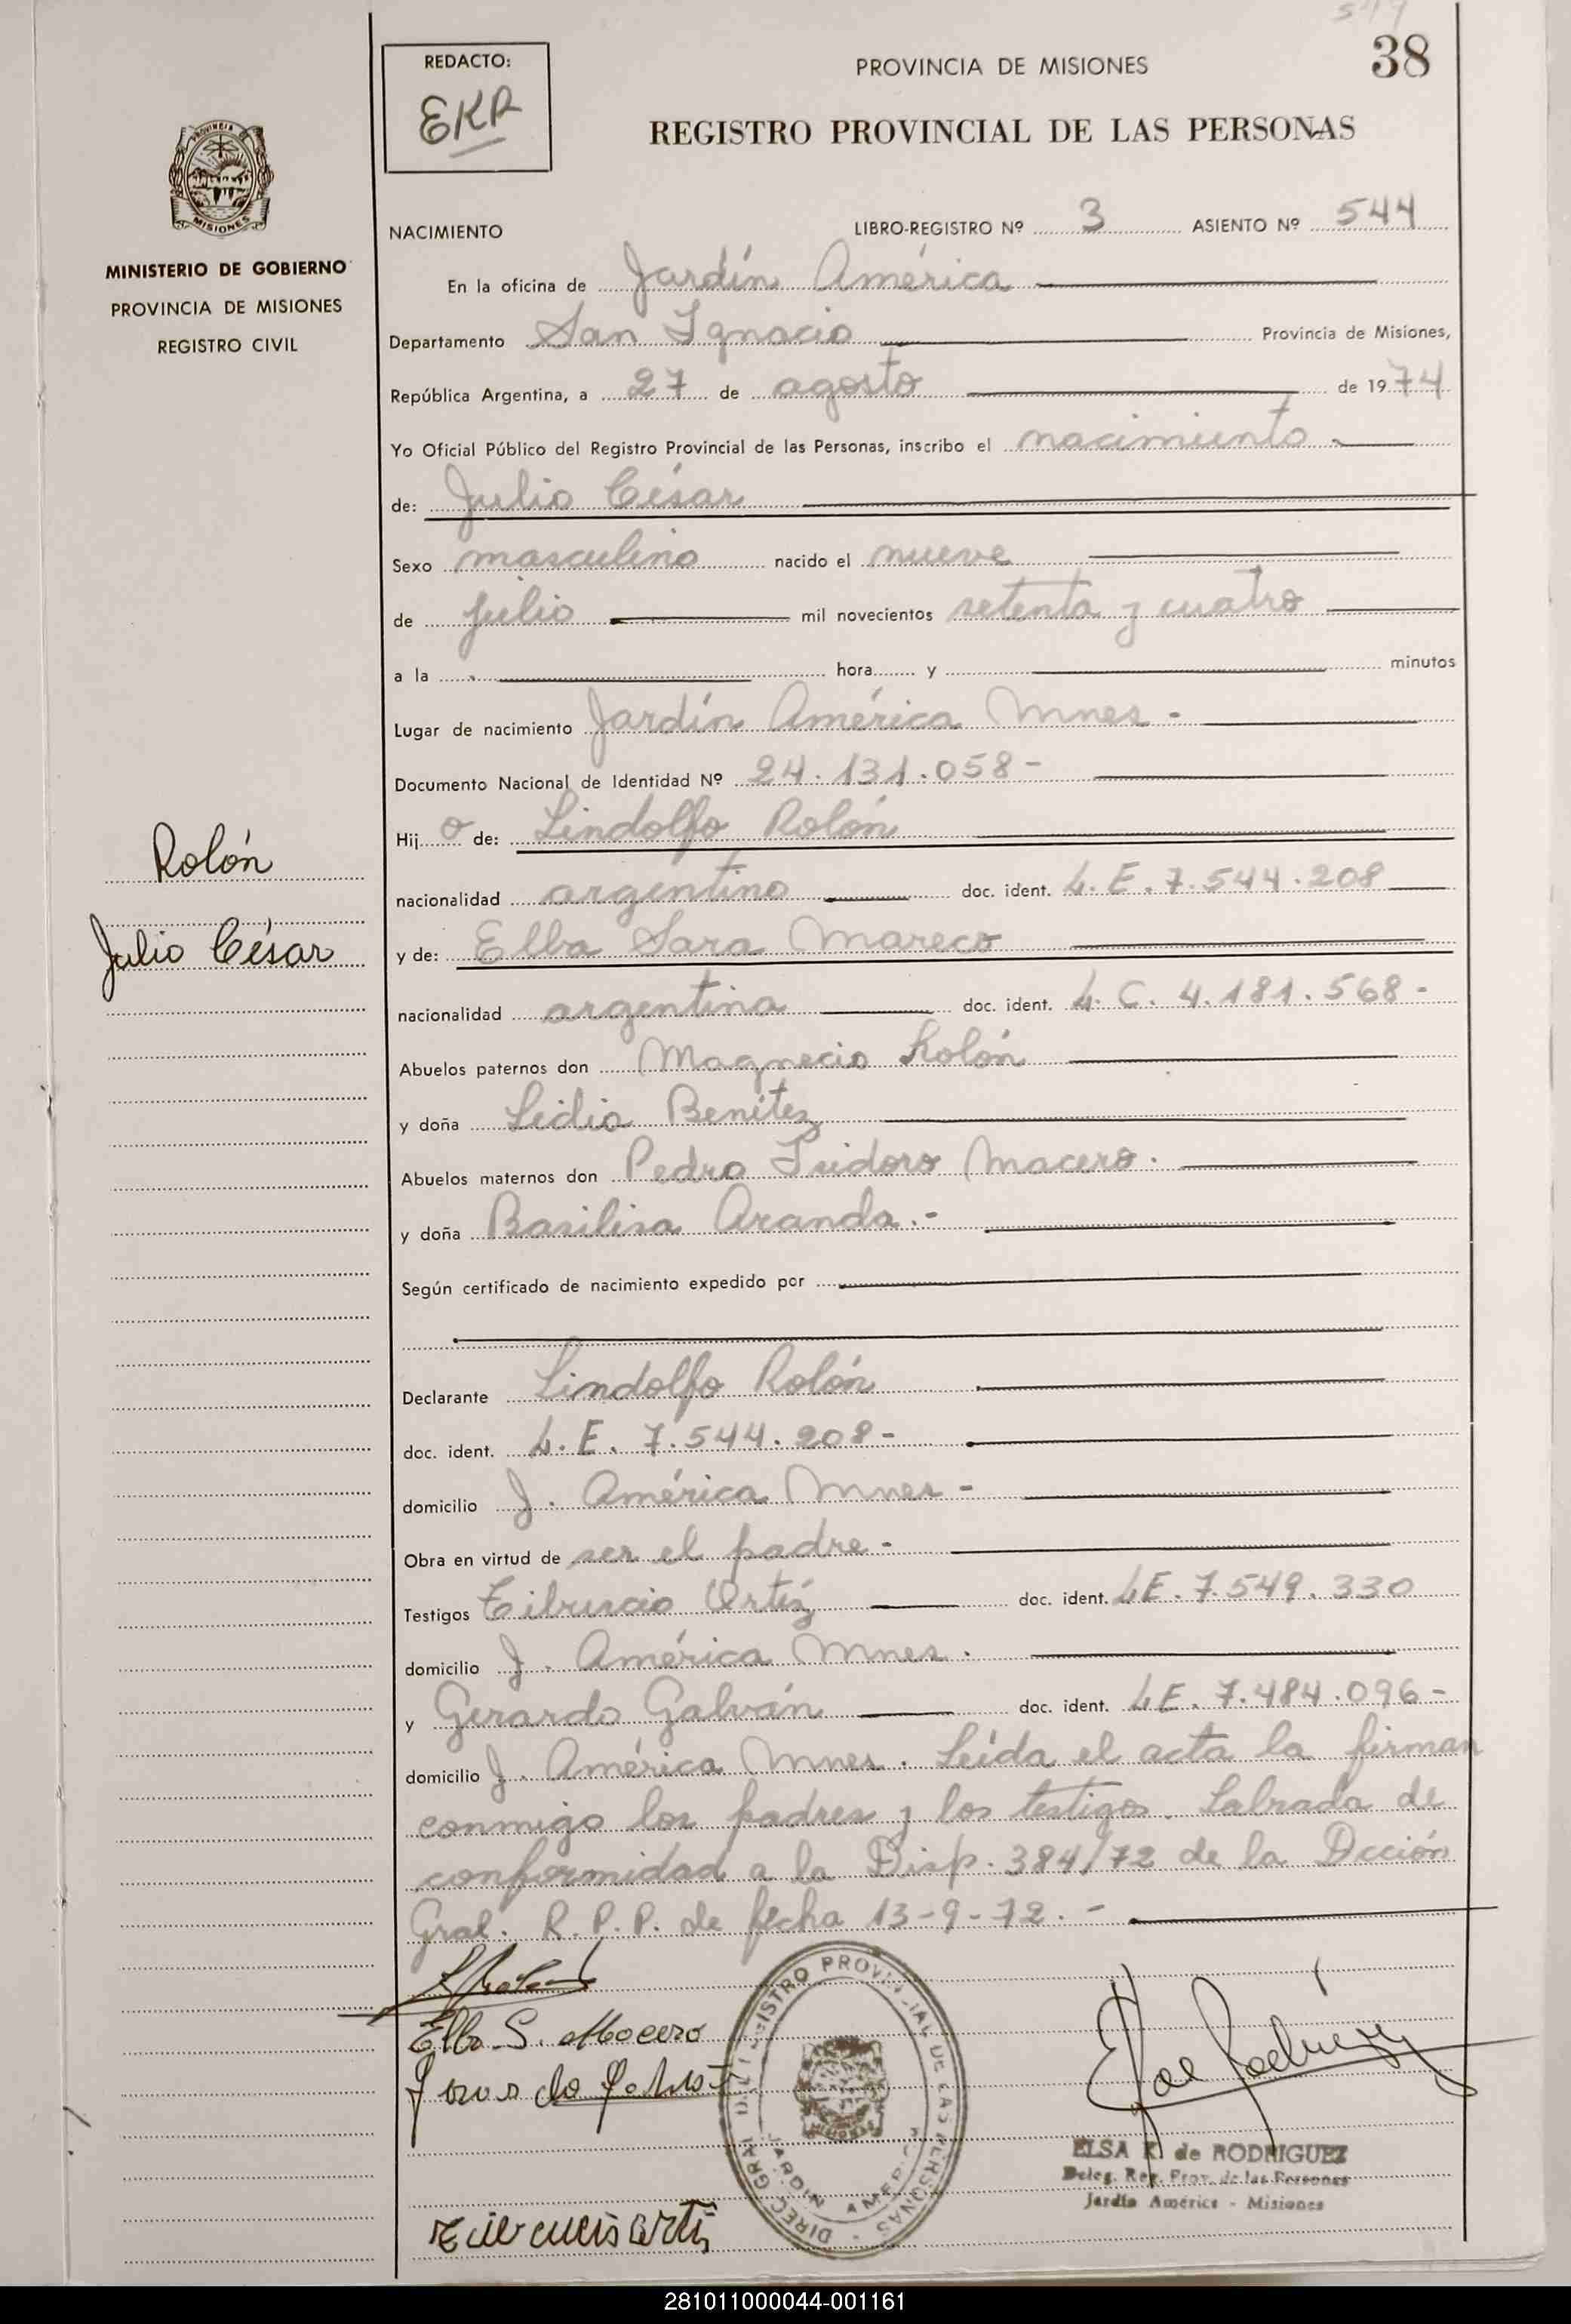 547
38
REDACTO:
EKR
PROVINCIA DE MISIONES
REGISTRO PROVINCIAL DE LAS PERSONAS
PROVINCIA
MISIONES
MINISTERIO DE GOBIERNO
PROVINCIA DE MISIONES
REGISTRO CIVIL
NACIMIENTO LIBRO-REGISTRO Nº 3 ASIENTO Nº 544
En la oficina de Jardín América
Departamento San Ignacio Provincia de Misiones,
República Argentina, a 27 de agosto de 1974
Yo Oficial Público del Registro Provincial de las Personas, inscribo el nacimiento
de: Julio César
Sexo masculino nacido el nueve
de julio mil novecientos setenta y cuatro
a la hora y minutos
Lugar de nacimiento Jardín América Mnes -
Documento Nacional de Identidad Nº 24.131.058-
Hijo de: Lindolfo Rolón
Rolón
nacionalidad argentino doc. ident. L.E. 7.544.208
Julio César
y de: Elba Sara Mareco
nacionalidad argentina doc. ident. L.C. 4.181.568-
Abuelos paternos don Magnecio Rolón
y doña Lidia Benítez
Abuelos maternos don Pedro Isidoro Macero.
y doña Basilisa Aranda.-
Según certificado de nacimiento expedido por
Declarante Lindolfo Rolón
doc. ident. L.E. 7.544.208-
domicilio J. América Mnes -
Obra en virtud de ser el padre -
Testigos Tiburcio Ortíz doc. ident. LE. 7.549.330
domicilio J. América Mnes.
y Gerardo Galván doc. ident. LE. 7.484.096-
domicilio J. América Mnes. Leída el acta la firman
conmigo los padres y los testigos. Labrada de
conformidad a la Disp. 384/72 de la Dcción
Gral. R.P.P. de fecha 13-9-72. -
Elba S. Macero
DIREC. GRAL. DEL REGISTRO PROVINCIAL DE LAS PERSONAS
JARDIN AMERICA
ELSA K. de RODRIGUEZ
Deleg. Reg. Prov. de las Personas
Jardín América - Misiones
281011000044-001161